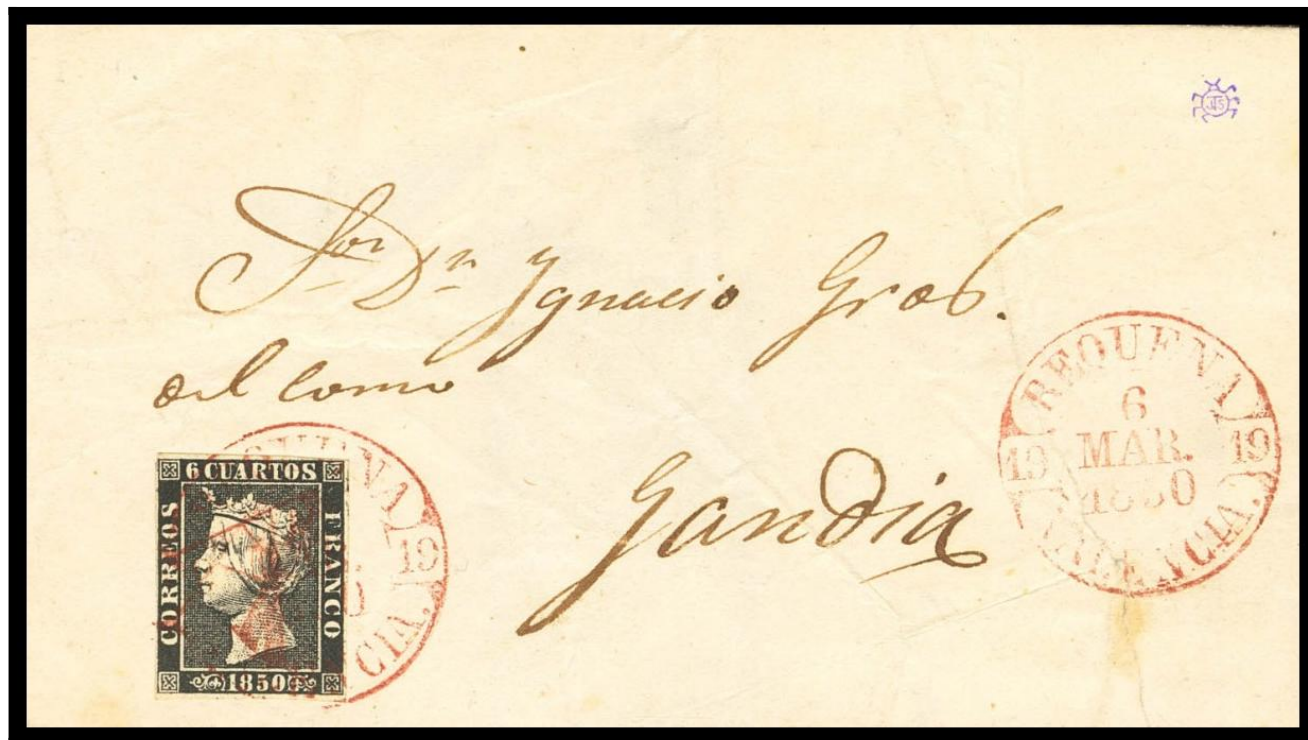 JTS
Sor Dn Ygnacio Gros.
del comº
Gandia
REQUENA
6
MAR.
1850
19 19
VALENCIA.
6 CUARTOS
CORREOS
FRANCO
1850
19
CIA.